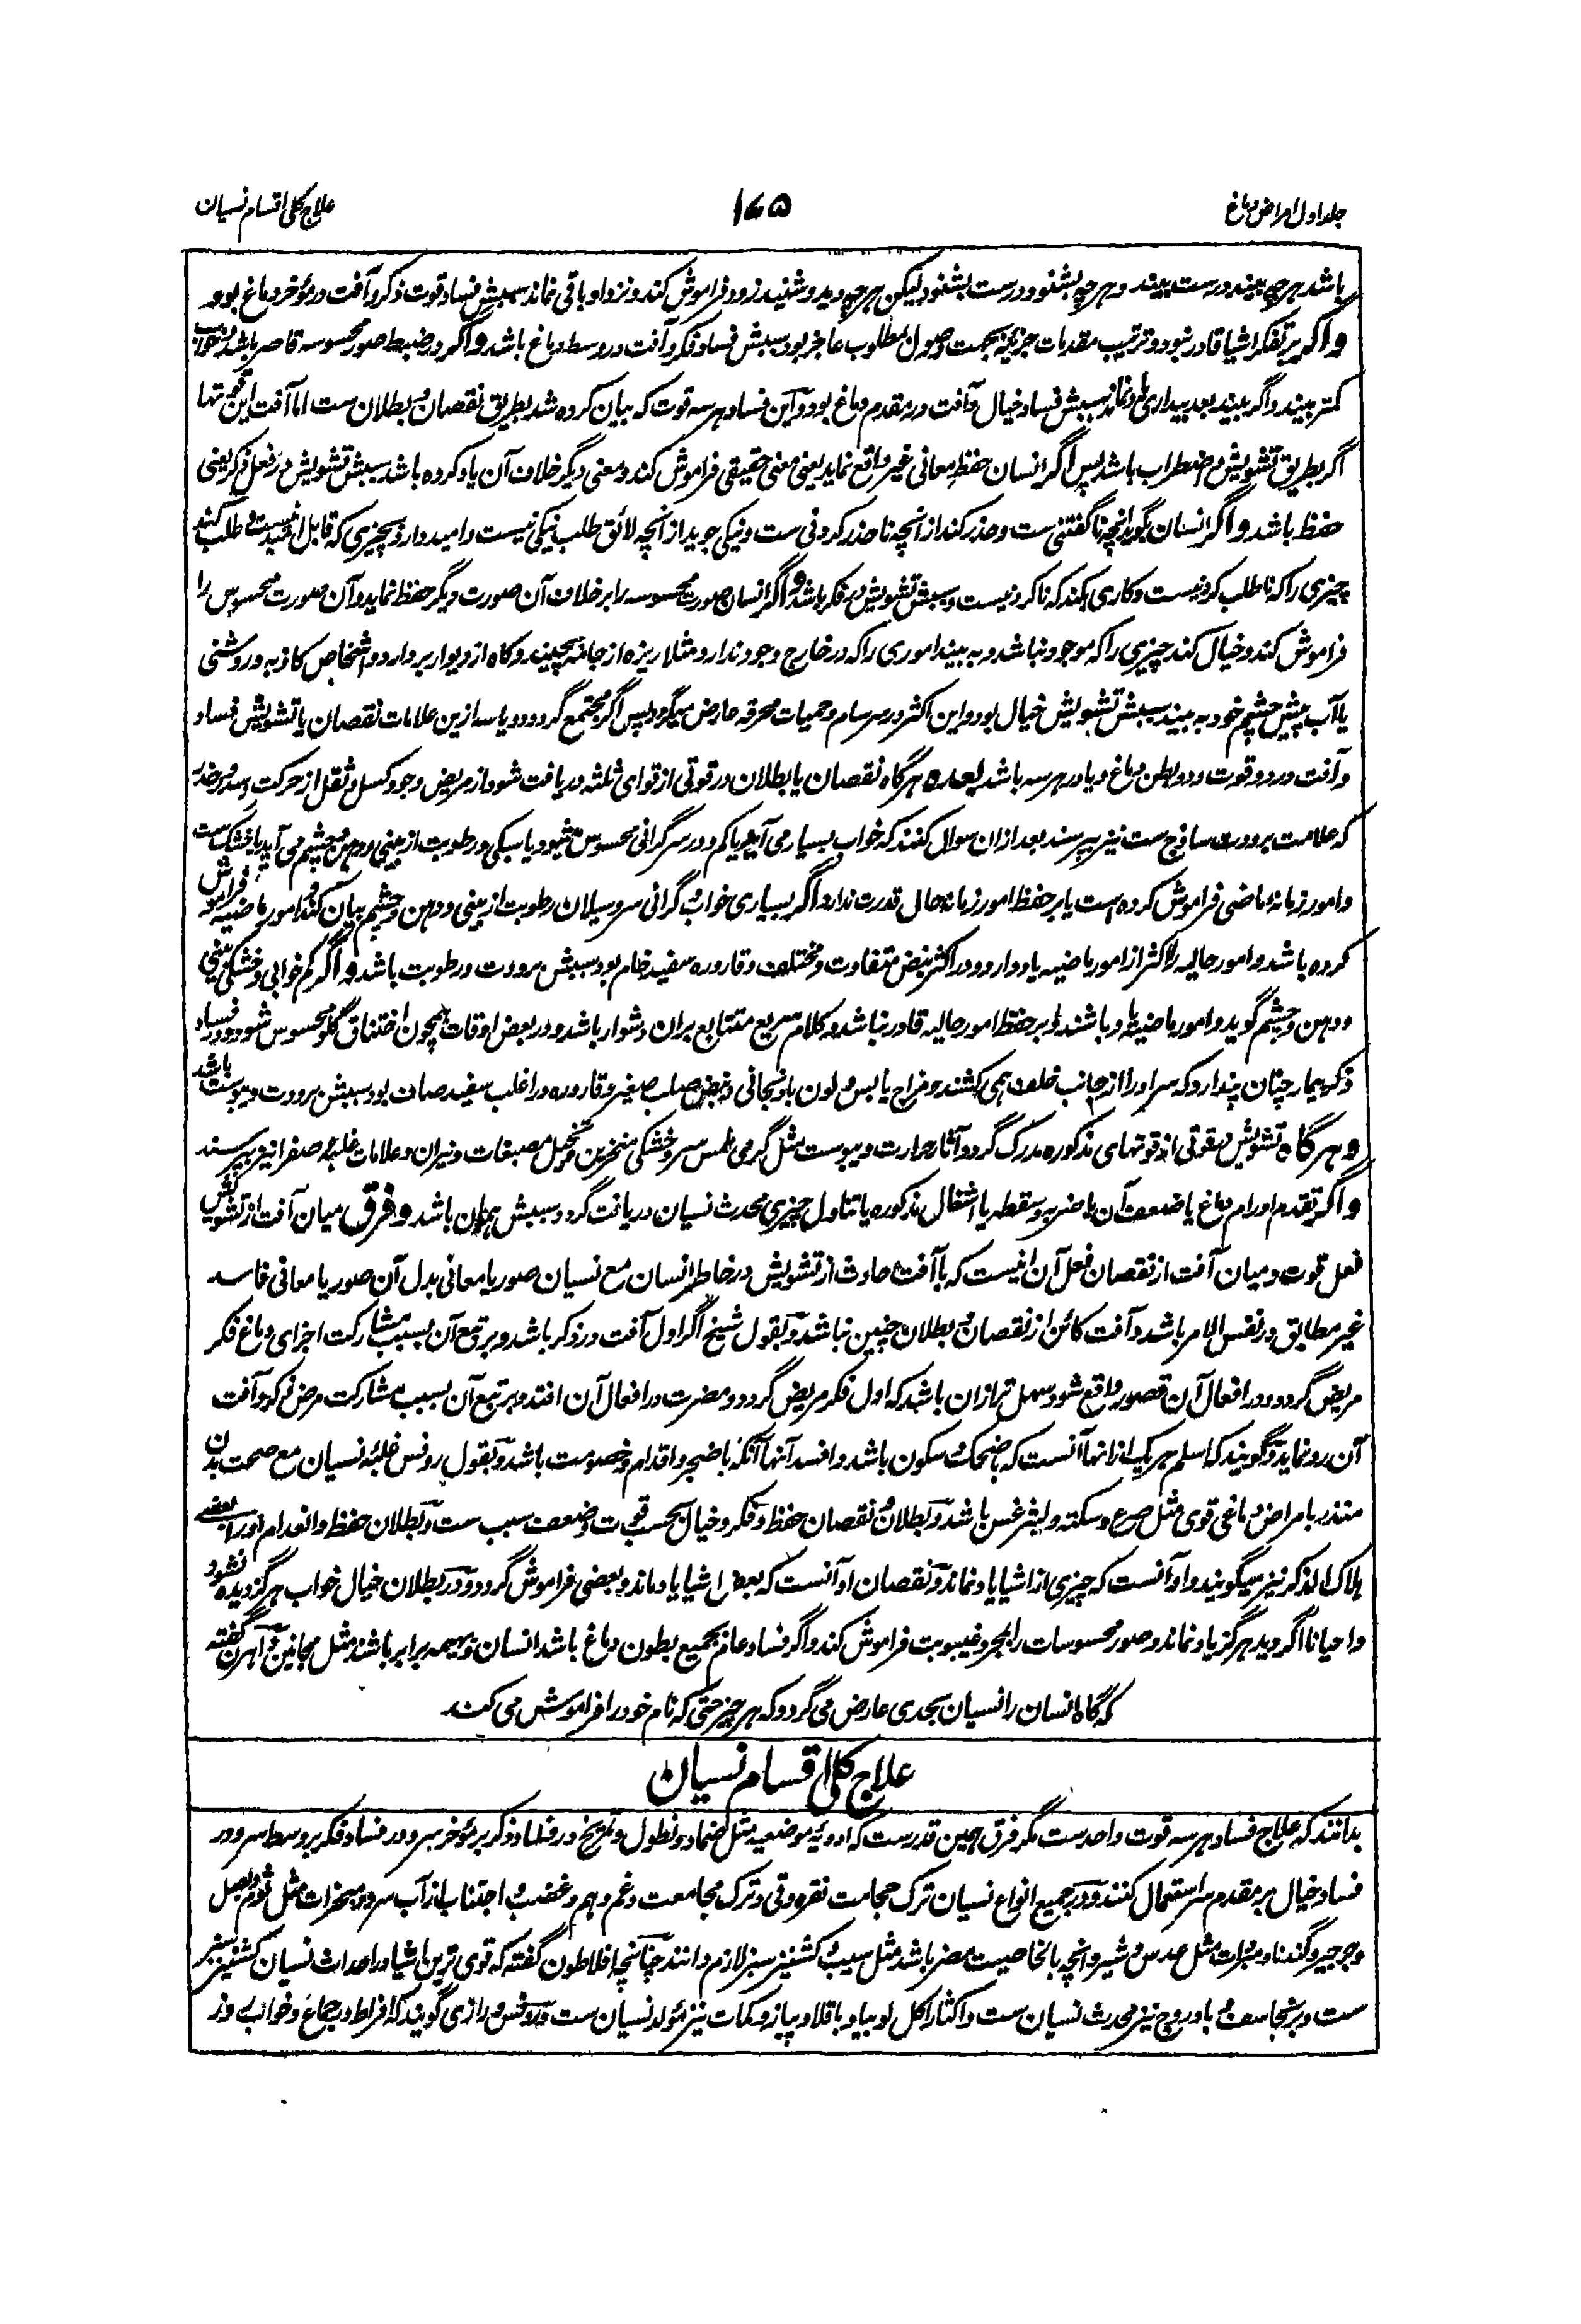 جلد اول امراض دماغ
۱۶۵
علاج کلی اقسام نسیان
باشد هرچه بیند درست بیند و هرچه بشنود درست بشنود لیکن هرچه دید و شنید زود فراموش کند و نزد او باقی نماند سببش فساد قوت ذکر و آفت در مؤخر دماغ بود
و اگر بر تفکر اشیا قادر نبود و ترتیب مقدمات جزئیه بجهت وصول مطلوب عاجز بود سببش فساد فکر و آفت در وسط دماغ باشد و اگر در ضبط صور محسوسه قاصر باشد و خواب
کمتر بیند و اگر بیند بعد بیداری یاد نماند سببش فساد خیال و آفت در مقدم دماغ بود و این فساد هر سه قوت که بیان کرده شد بطریق نقصان و بطلان ست اما آفت این قوتها
اگر بطریق تشویش و اضطراب باشد پس اگر انسان حفظ معانی غیر واقع نماید یعنی معنی حقیقی فراموش کند و معنی دیگر خلاف آن یاد کرده باشد سببش تشویش در فعل ذکر یعنی
حفظ باشد و اگر انسان بگوید انچه ناگفتنی ست و حذر کند از آنچه نا حذر کردنی ست و نیکی جوید از آنچه لائق طلب نیکی نیست و امید دارد بچیزی که قابل امید نیست و طلب کند
چیزی را که نا طلب کردنیست و کاری بکند که نا کردنیست سببش تشویش در فکر باشد و اگر انسان صورت محسوسه را بر خلاف آن صورت دیگر حفظ نماید و آن صورت محسوس را
فراموش کند و خیال کند چیزی را که موجود نباشد و به بیند اموری را که در خارج وجود ندارد مثلا ریزه از جامه بچیند و کاه از دیوار بردارد و اشخاص کاذبه و روشنی
یا آب پیش چشم خود به بیند سببش تشویش خیال بود و این اکثر در سرسام و حمیات محرقه عارض میگردد پس اگر مجتمع گردد دو یا سه ازین علامات نقصان یا تشویش فساد
و آفت در دو قوت و دو بطن دماغ و یا در هر سه باشد بعده هرگاه نقصان یا بطلان در قوتی از قوای ثلثه دریافت شود از مریض وجود کسل و ثقل از حرکت و سدر و خدر
که علامت برودت ساذج ست نیز بپرسند بعد ازان سوال کنند که خواب بسیار می آید یا کم و در سر گرانی محسوس میشود یا سبکی و رطوبت از بینی و دهن و چشم می آید یا خشک ست
و امور زمانه ماضی فراموش کرده است یا بر حفظ امور زمانه حال قدرت ندارد اگر بسیاری خواب و گرانی سر و سیلان رطوبت از بینی و دهن و چشم بیان کند و امور ماضیه فراموش
کرده باشد و امور حالیه را اکثر از امور ماضیه یاد دارد و در اکثر نبض متفاوت و مختلف و قاروره سفید خام بود سببش برودت و رطوبت باشد و اگر کم خوابی و خشکی بینی
و دهن و چشم گوید و امور ماضیه یاد باشند و بر حفظ امور حالیه قادر نباشد و کلام سریع متتابع بران دشوار باشد و در بعض اوقات همچون اختناق گلو محسوس شود و در فساد
ذکر بیمار چنان پندارد که سر او را از جانب خلف همی کشند و مزاج یابس و لون بادنجانی و نبض صلب صغیر و قاروره در اغلب سفید صاف بود سببش برودت و یبوست باشد
و هرگاه تشویش بقوتی از قوتهای مذکوره مدرک گردد آثار حرارت و یبوست مثل گرمی لمس سر و خشکی منخرین و تخیل مصبغات و نیران و علامات غلبه صفرا نیز بپرسند
و اگر تقدم اورام دماغ یا ضعف آن یا ضربه و سقطه یا اشغال مذکوره یا تناول چیزی محدث نسیان دریافت گردد سببش همان باشد و فرق میان آفت از تشویش
فعل قوت و میان آفت از نقصان فعل آن اینست که با آفت حادث از تشویش در خاطر انسان مع نسیان صور یا معانی بدل آن صور یا معانی فاسد
غیر مطابق در نفس الامر باشد و آفت کائن از نقصان و بطلان چنین نباشد و بقول شیخ اگر اول آفت در ذکر باشد و بر تبع آن بسبب مشارکت اجزای دماغ فکر
مریض گردد و در افعال آن قصور واقع شود سهل تر ازان باشد که اول فکر مریض گردد و مضرت در افعال آن افتد و بر تبع آن بسبب مشارکت مرض ذکر و آفت
آن رو نماید و گویند که اسلم هر یک از انها آنست که با ضحک و سکون باشد و افسد آنها آنکه با ضجر و اقدام و خصومت باشد و بقول روفس غلبه نسیان مع صحت بدن
منذر بامراض دماغی قوی مثل صرع و سکته و لیثرغس باشد و بطلان و نقصان حفظ و فکر و خیال بحسب قوت و ضعف سبب ست و بطلان حفظ و انعدام او را بعضی
هلاک الذکر نیز میگویند و او آنست که چیزی از اشیا یاد نماند و نقصان او آنست که بعض اشیا یاد ماند و بعضی فراموش گردد و در بطلان خیال خواب هرگز دیده نشود
و احیانا اگر دید هرگز یاد نماند و صور محسوسات را بمجرد غیبوبت فراموش کند و اگر فساد عام بجمیع بطون دماغ باشد انسان و بهیمه برابر باشند مثل مجانین و اهرن گفته
که گاه انسان را نسیان بحدی عارض می گردد که هر چیز حتی که نام خود را فراموش می کند
علاج کلی اقسام نسیان
بدانند که علاج فساد هر سه قوت واحد ست مگر فرق همین قدر ست که ادویه موضعیه مثل ضماد و نطول و تمریخ در فساد ذکر بر مؤخر سر و در فساد فکر بر وسط سر و در
فساد خیال بر مقدم سر استعمال کنند و در جمیع انواع نسیان ترک حجامت نقره و قی و ترک مجامعت و غم و هم و غضب و اجتناب از آب سرد و مبخرات مثل ثوم و بصل
و جرجیر و گندنا و مبردات مثل عدس و شیر و انچه بالخاصیت مضر باشد مثل سیب و کشنیز سبز لازم دانند چنانچه افلاطون گفته که قوی ترین اشیا در احداث نسیان کشنیز سبز
ست و برنجاسف و بادروج نیز محدث نسیان ست و اکثار اکل لوبیا و باقلا و پیاز و کمات نیز مولد نسیان ست و روفس و رازی گویند که افراط در جماع و خواب روز